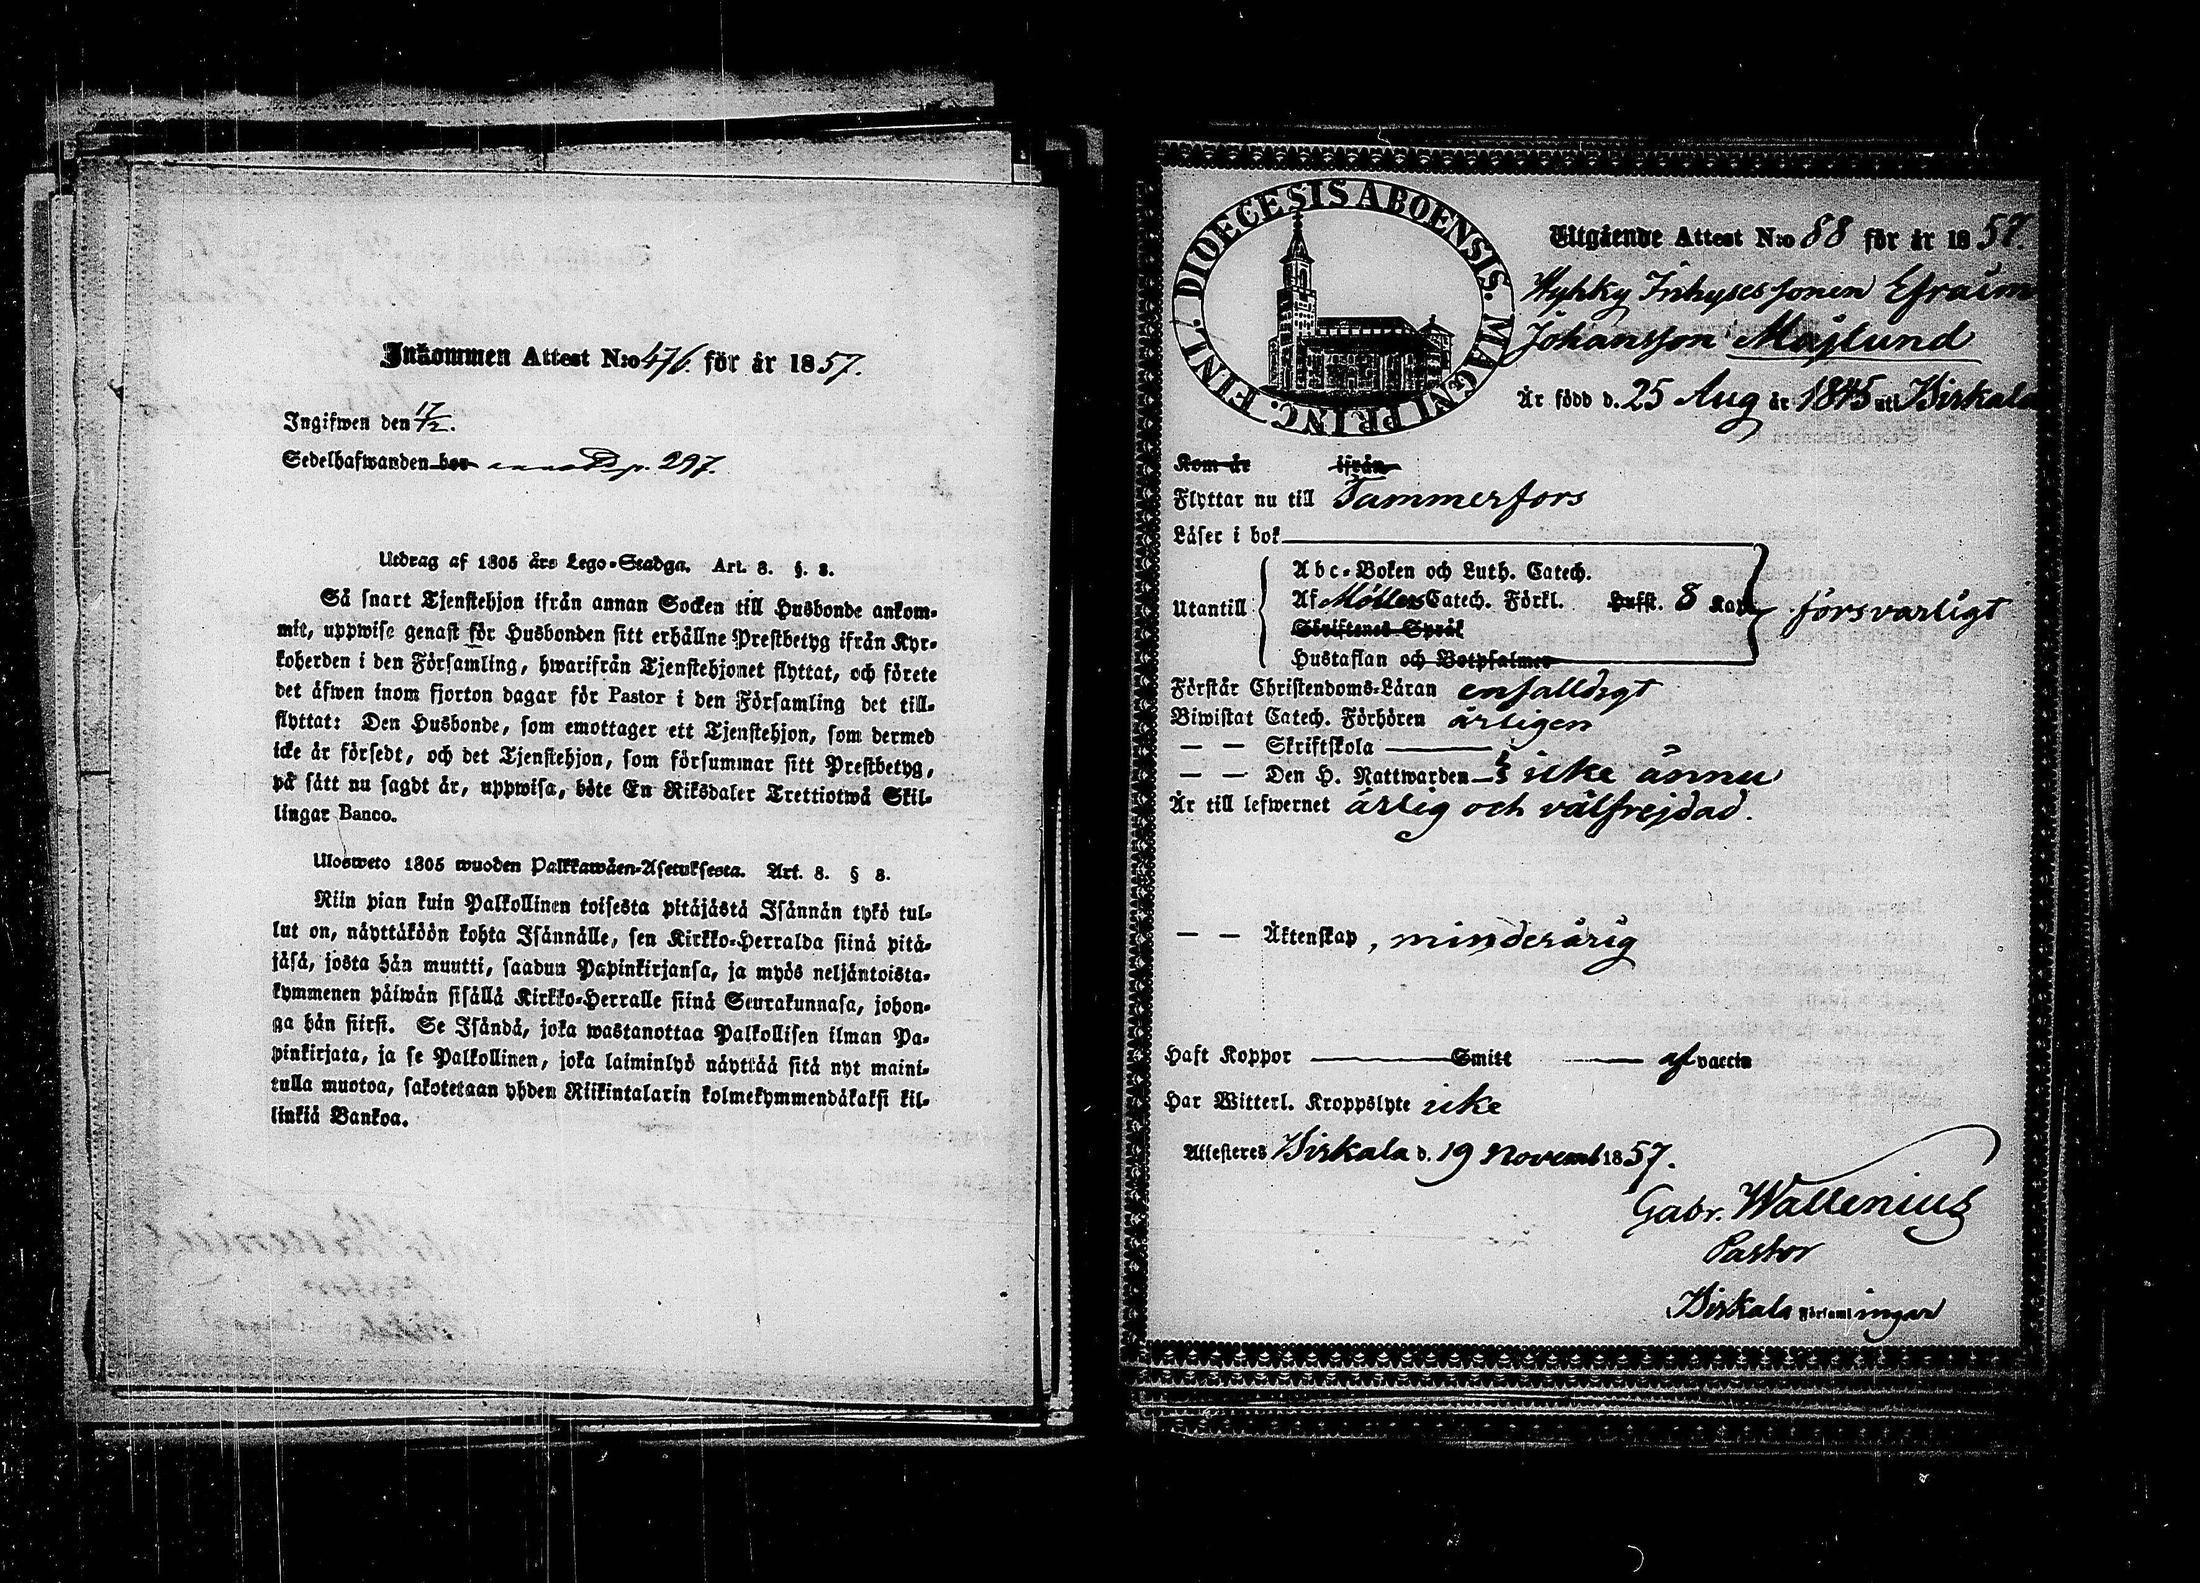 Inkommen Attest N:o 476. för år 1857.
Ingifwen den 17/12.
Sedelhafwanden bor p. 297.
Utdrag af 1805 års Lego-Stadga. Art. 8. §. 8.
Så snart Tjenstehjon ifrån annan Socken till Husbonde ankom-
mit, uppwise genast för Husbonden sitt erhållne Prestbetyg ifrån Kyr-
koherden i den Församling, hwarifrån Tjenstehjonet flyttat, och förete
det äfwen inom fjorton dagar för Pastor i den Församling det till-
flyttat: Den Husbonde, som emottager ett Tjenstehjon, som dermed
icke är försedt, och det Tjenstehjon, som försummar sitt Prestbetyg,
på sätt nu sagdt är, uppwisa, böte En Riksdaler Trettiotwå Skil-
lingar Banco.
Ulosweto 1805 wuoden Palkkawäen-Asetuksesta. Art. 8. § 8.
Niin pian kuin Palkollinen toisesta pitäjästä Isännän tykö tul-
lut on, näyttäköön kohta Isännälle, sen Kirkko-Herralda siinä pitä-
jäsä, josta hän muutti, saadun Papinkirjansa, ja myös neljäntoista-
kymmenen päiwän sisällä Kirkko-Herralle siinä Seurakunnasa, johon-
ga hän siirsi. Se Isändä, joka wastanottaa Palkollisen ilman Pa-
pinkirjata, ja se Palkollinen, joka laiminlyö näyttää sitä nyt maini-
tulla muotoa, sakotetaan yhden Riikintalarin kolmekymmendäkaksi kil-
linkiä Bankoa.
FINL. DIOECESIS ABOENSIS. MAGNI PRINC.
Utgående Attest N:o 88 för år 1857.
Hyhky Inhysessonen Efraim
Johansson Majlund
Är född d. 25 Aug år 1845 uti Birkala
Kom år ifrån
Flyttar nu till Tammerfors
Läser i bok
Abc-Boken och Luth. Catech.
Utantill Af Möllers Catech. Förkl. Hufst. 8 Kap försvarligt
Skriftenes Språk
Hustaflan och Botpsalmer
Förstår Christendoms-Läran enfalldigt
Biwistat Catech. Förhören årligen
— — Skriftskola
— — Den H. Nattwarden icke ännu
Är till lefwernet ärlig och välfrejdad.
— — Äktenskap, minderårig
Haft Koppor Smitt af vaccin
Har Witterl. Kroppslyte icke
Attesteres Birkala d. 19 Novemb 1857.
Gabr. Wallenius
Pastor
i Birkala Församlingar